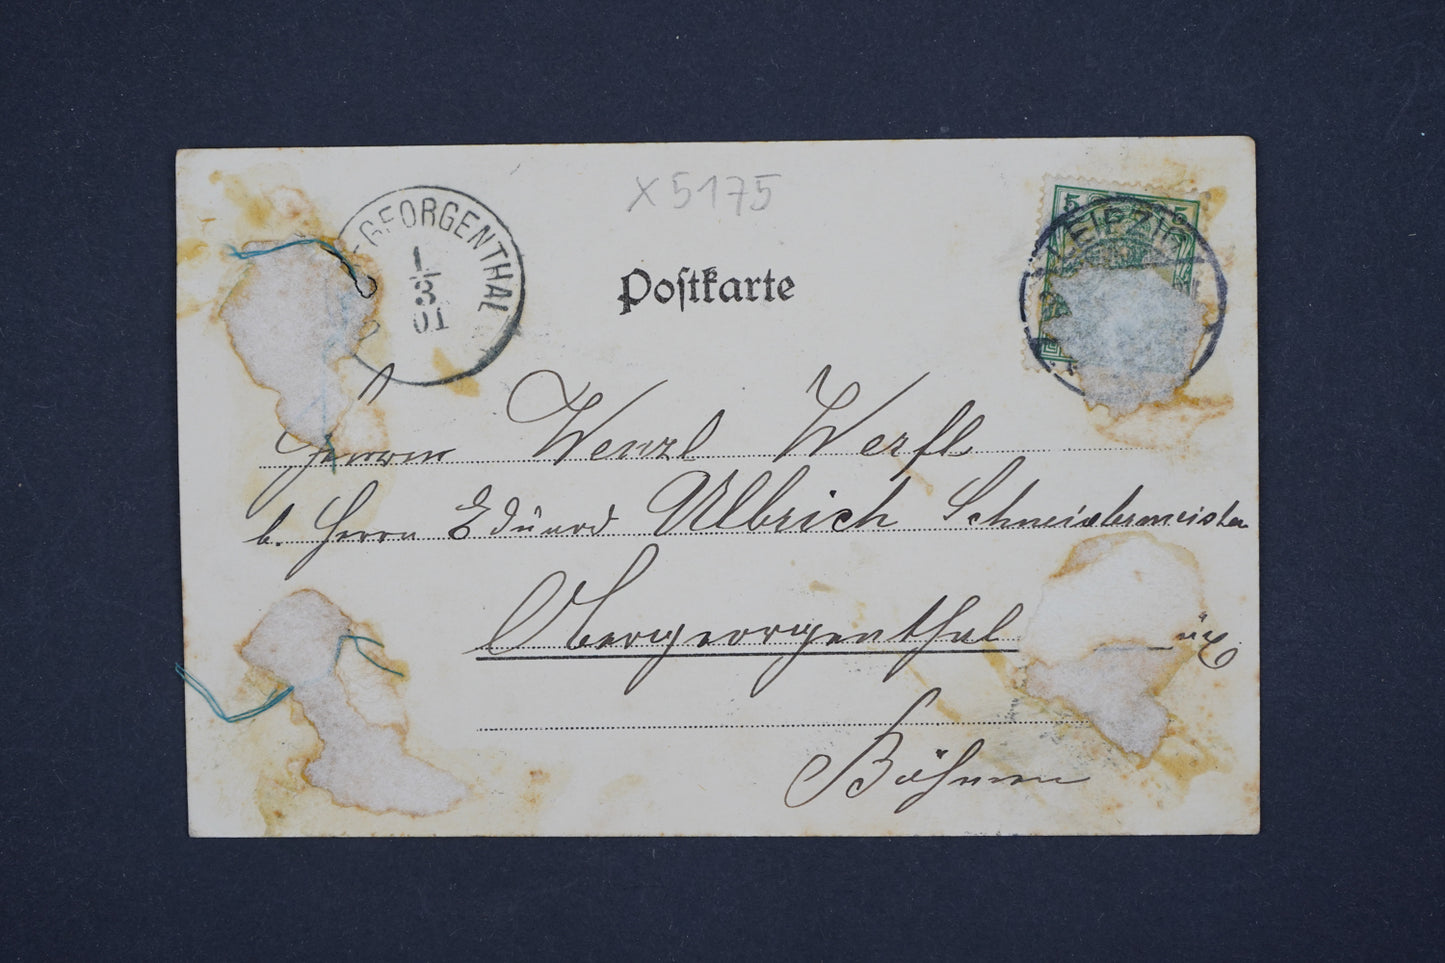 X 5175
ERGEORGENTHAL
1/3
01
LEIPZIG
5 5
Postkarte
Herrn Wenzl Werfl
b. Herrn Eduard Ulbrich Schneidermeister
Obergeorgenthal
Böhmen